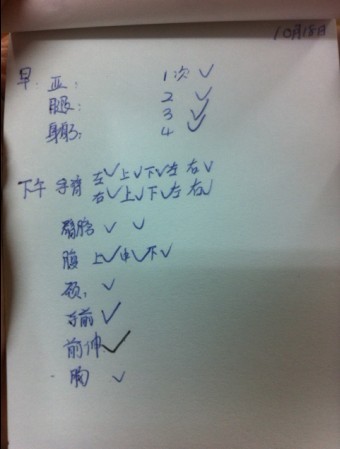 10月18日
早. 亚: 1次 ✓
腿: 2 ✓
3 ✓
身躬: 4 ✓
下午 手臂 左✓上✓下✓左 右✓
右✓上✓下✓左 右✓
✓ ✓
腹 上✓中✓下✓
颈: ✓
前 ✓
前伸 ✓
胸 ✓